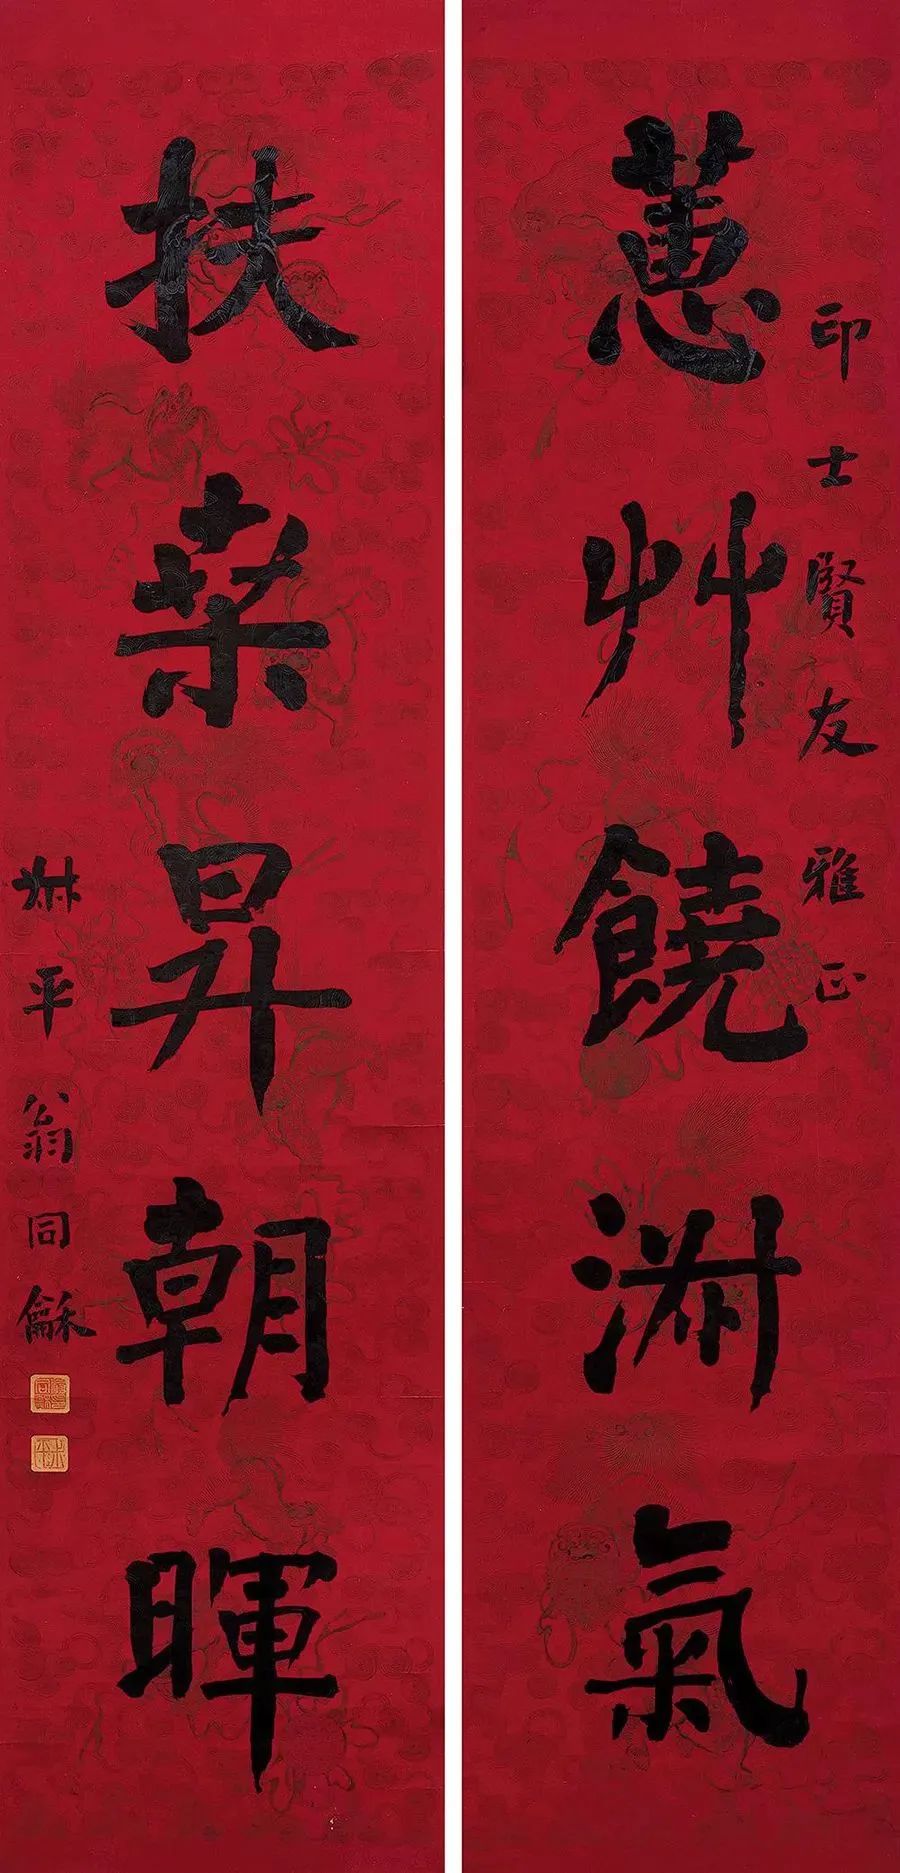 印士賢友雅正
蕙艸饒淑氣
扶桒昇朝暉
叔平翁同龢